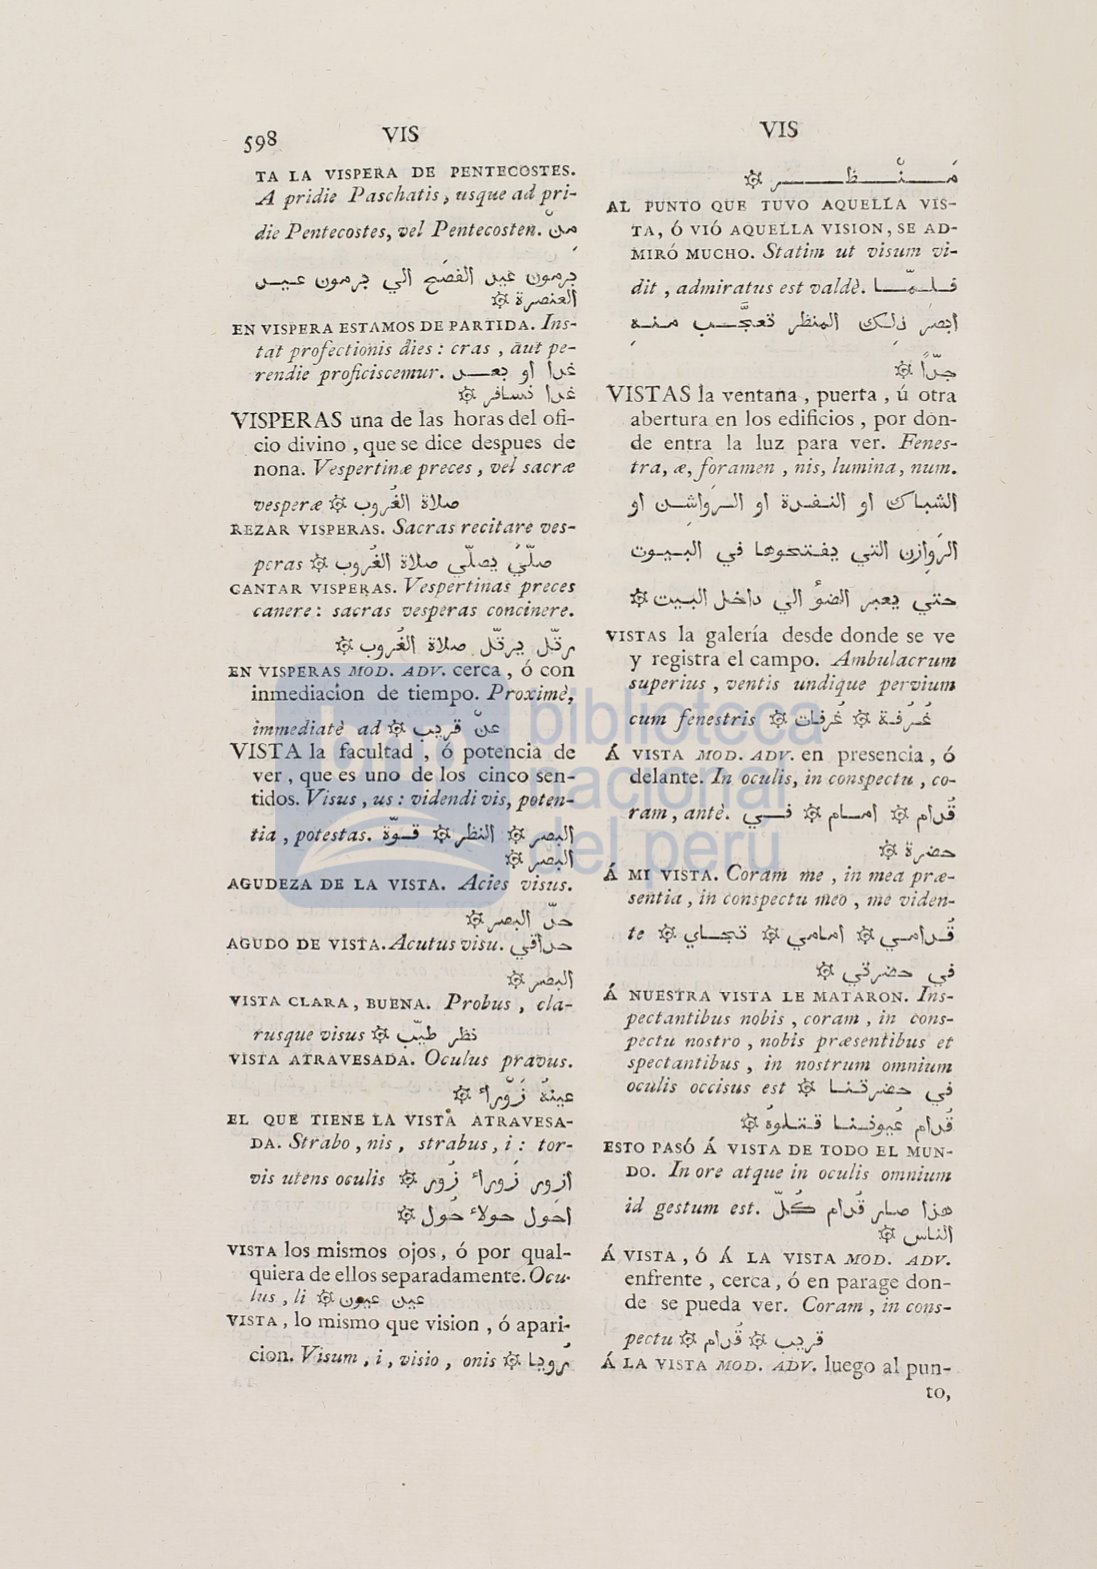 598
VIS
TA LA VISPERA DE PENTECOSTES.
A pridie Paschatis, usque ad pri-
die Pentecostes, vel Pentecosten. مِنْ
برمون عيد الفصَح الي برمون عـيـد
العنصرة ۞
EN VISPERA ESTAMOS DE PARTIDA. Ins-
tat profectionis dies : cras , aut pe-
rendie proficiscemur. غدا او بعـد
غدا نسافر ۞
VISPERAS una de las horas del ofi-
cio divino , que se dice despues de
nona. Vespertinæ preces , vel sacræ
vesperæ ۞ صلاة الغُروب
REZAR VISPERAS. Sacras recitare ves-
peras ۞ صلّيُ يصلّي صلاة الغُروب
CANTAR VISPERAS. Vespertinas preces
canere : sacras vesperas concinere.
رتّل يرتّل صلاة الغُروب ۞
EN VISPERAS MOD. ADV. cerca , ó con
inmediacion de tiempo. Proximè,
immediatè ad ۞ عنْ قريب
VISTA la facultad , ó potencia de
ver , que es uno de los cinco sen-
tidos. Visus , us : videndi vis, poten-
tia , potestas. البصر ۞ النظر ۞ قوّة
البصر ۞
AGUDEZA DE LA VISTA. Acies visus.
حدّ البصر ۞
AGUDO DE VISTA. Acutus visu. حداقي
البصر ۞
VISTA CLARA , BUENA. Probus , cla-
rusque visus ۞ نظر طيّب
VISTA ATRAVESADA. Oculus pravus.
عينهُ زَوْراء ۞
EL QUE TIENE LA VISTA ATRAVESA-
DA. Strabo , nis , strabus , i : tor-
vis utens oculis ۞ ازور زَوراء زُور
احَول حولاء حُول ۞
VISTA los mismos ojos, ó por qual-
quiera de ellos separadamente. Ocu-
lus , li ۞ عين عيون
VISTA , lo mismo que vision , ó apari-
cion. Visum , i , visio , onis ۞ رُويا
VIS
مَـنْـظـر ۞
AL PUNTO QUE TUVO AQUELLA VIS-
TA, Ó VIÓ AQUELLA VISION, SE AD-
MIRÓ MUCHO. Statim ut visum vi-
dit , admiratus est valdè. فـلـمّـا
ابصر ذلِك المنظر تعجّـب مـنـهِ
جِدّاً ۞
VISTAS la ventana , puerta , ú otra
abertura en los edificios , por don-
de entra la luz para ver. Fenes-
tra, æ, foramen , nis, lumina, num.
الشباك او النـفـدة او الـرَواشِن او
الرَوازِن التي يفـتـحوها في البـيـوت
حتي يعبر الضوُ الي داخل البـيت ۞
VISTAS la galería desde donde se ve
y registra el campo. Ambulacrum
superius , ventis undique pervium
cum fenestris ۞ غُـرفـة ۞ غُرفات
Á VISTA MOD. ADV. en presencia , ó
delante. In oculis, in conspectu , co-
ram , antè. قُدام ۞ امـام ۞ فـي
حضرة ۞
Á MI VISTA. Coram me , in mea præ-
sentia , in conspectu meo , me viden-
te ۞ قُـدامـي ۞ امامي ۞ تجاي
في حضرتي ۞
Á NUESTRA VISTA LE MATARON. Ins-
pectantibus nobis , coram , in cons-
pectu nostro , nobis præsentibus et
spectantibus , in nostrum omnium
oculis occisus est ۞ في حضرتـنـا
قُدام عُيونـنـا قـتـلوهُ ۞
ESTO PASÓ Á VISTA DE TODO EL MUN-
DO. In ore atque in oculis omnium
id gestum est. هذا صار قُدام كُلّ
الناس ۞
Á VISTA , Ó Á LA VISTA MOD. ADV.
enfrente , cerca , ó en parage don-
de se pueda ver. Coram , in cons-
pectu ۞ قُدام ۞ قريب
Á LA VISTA MOD. ADV. luego al pun-
to,
biblioteca
nacional
del perú